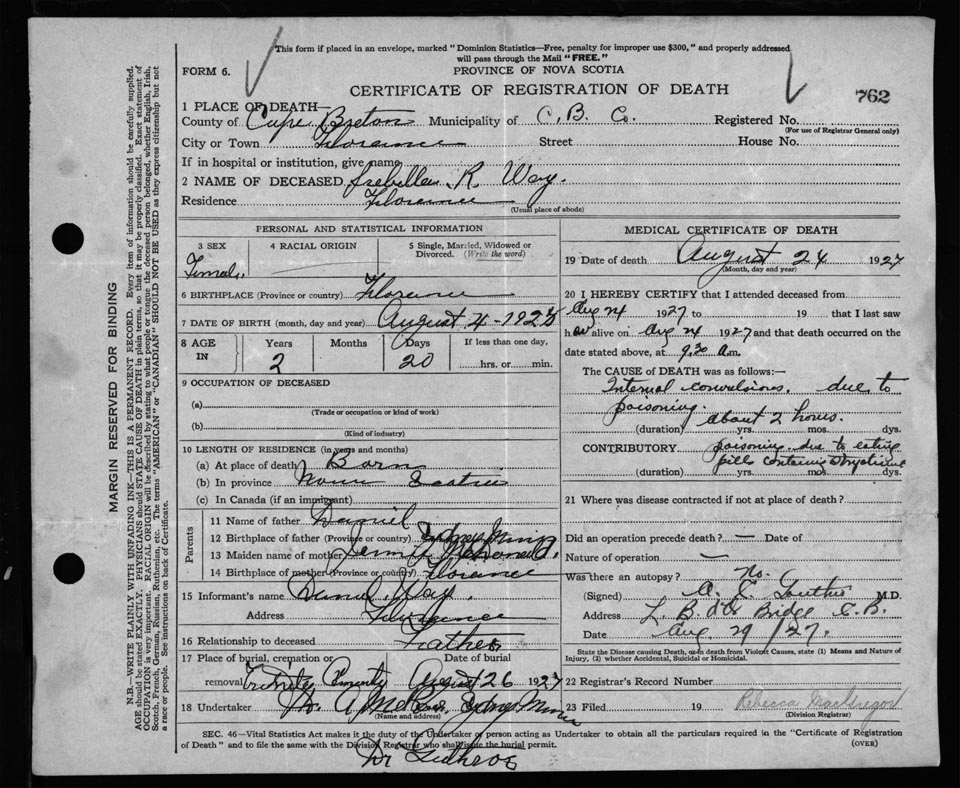 This form if placed in an envelope, marked "Dominion Statistics—Free, penalty for improper use $300," and properly addressed
will pass through the Mail "FREE."
FORM 6.
PROVINCE OF NOVA SCOTIA
CERTIFICATE OF REGISTRATION OF DEATH
762
1 PLACE OF DEATH—
County of Cape Breton Municipality of C. B. Co. Registered No.
(For use of Registrar General only)
City or Town Florence Street House No.
If in hospital or institution, give name
2 NAME OF DECEASED Isebella R. Way.
Residence Florence
(Usual place of abode)
PERSONAL AND STATISTICAL INFORMATION
3 SEX 4 RACIAL ORIGIN 5 Single, Married, Widowed or
Divorced. (Write the word)
Female
6 BIRTHPLACE (Province or country) Florence
7 DATE OF BIRTH (month, day and year) August 4 - 1925
8 AGE IN Years Months Days If less than one day,
2 20 hrs. or min.
9 OCCUPATION OF DECEASED
(a)
(Trade or occupation or kind of work)
(b)
(Kind of industry)
10 LENGTH OF RESIDENCE (in years and months)
(a) At place of death Born
(b) In province Nova Scotia
(c) In Canada (if an immigrant)
Parents
11 Name of father Daniel
12 Birthplace of father (Province or country) Sydney Mines
13 Maiden name of mother
14 Birthplace of mother (Province or country) Florence
15 Informant's name Daniel Way.
Address Florence
16 Relationship to deceased Father
17 Place of burial, cremation or Date of burial
removal Trinity Cemetery August 26 1927
18 Undertaker Sydney Mines
(Name and address)
MEDICAL CERTIFICATE OF DEATH
19 Date of death August 24 1927
(Month, day and year)
20 I HEREBY CERTIFY that I attended deceased from
Aug 24 1927 to 19 that I last saw
her alive on Aug 24 1927 and that death occurred on the
date stated above, at 9.30 a.m.
The CAUSE of DEATH was as follows:—
Internal convulsions. due to
poisoning.
(duration) about 2 hours. yrs. mos. dys.
CONTRIBUTORY poisoning due to eating
pills containing strychnine
(duration) yrs. mos. dys.
21 Where was disease contracted if not at place of death?
Did an operation precede death? — Date of
Nature of operation —
Was there an autopsy? No.
(Signed) M.D.
Address Bridge C.B.
Date Aug 29 / 27.
State the Disease causing Death, or in death from Violent Causes, state (1) Means and Nature of
Injury, (2) whether Accidental, Suicidal or Homicidal.
22 Registrar's Record Number
23 Filed 19 Rebecca MacGregor
(Division Registrar)
SEC. 46—Vital Statistics Act makes it the duty of the Undertaker or person acting as Undertaker to obtain all the particulars required in the "Certificate of Registration
of Death" and to file the same with the Division Registrar who shall issue the burial permit.
(OVER)
MARGIN RESERVED FOR BINDING
N.B.—WRITE PLAINLY WITH UNFADING INK—THIS IS A PERMANENT RECORD. Every item of information should be carefully supplied.
AGE should be stated EXACTLY. PHYSICIANS should STATE CAUSE OF DEATH in plain terms, so that it may be properly classified. Exact statement of
OCCUPATION is very important. RACIAL ORIGIN will be described by stating to what people or tongue the deceased person belonged, whether English, Irish,
Scotch, French, German, Russian, Ruthenian, etc. The terms "AMERICAN" or "CANADIAN" SHOULD NOT BE USED as they express citizenship but not
a race or people. See instructions on back of Certificate.